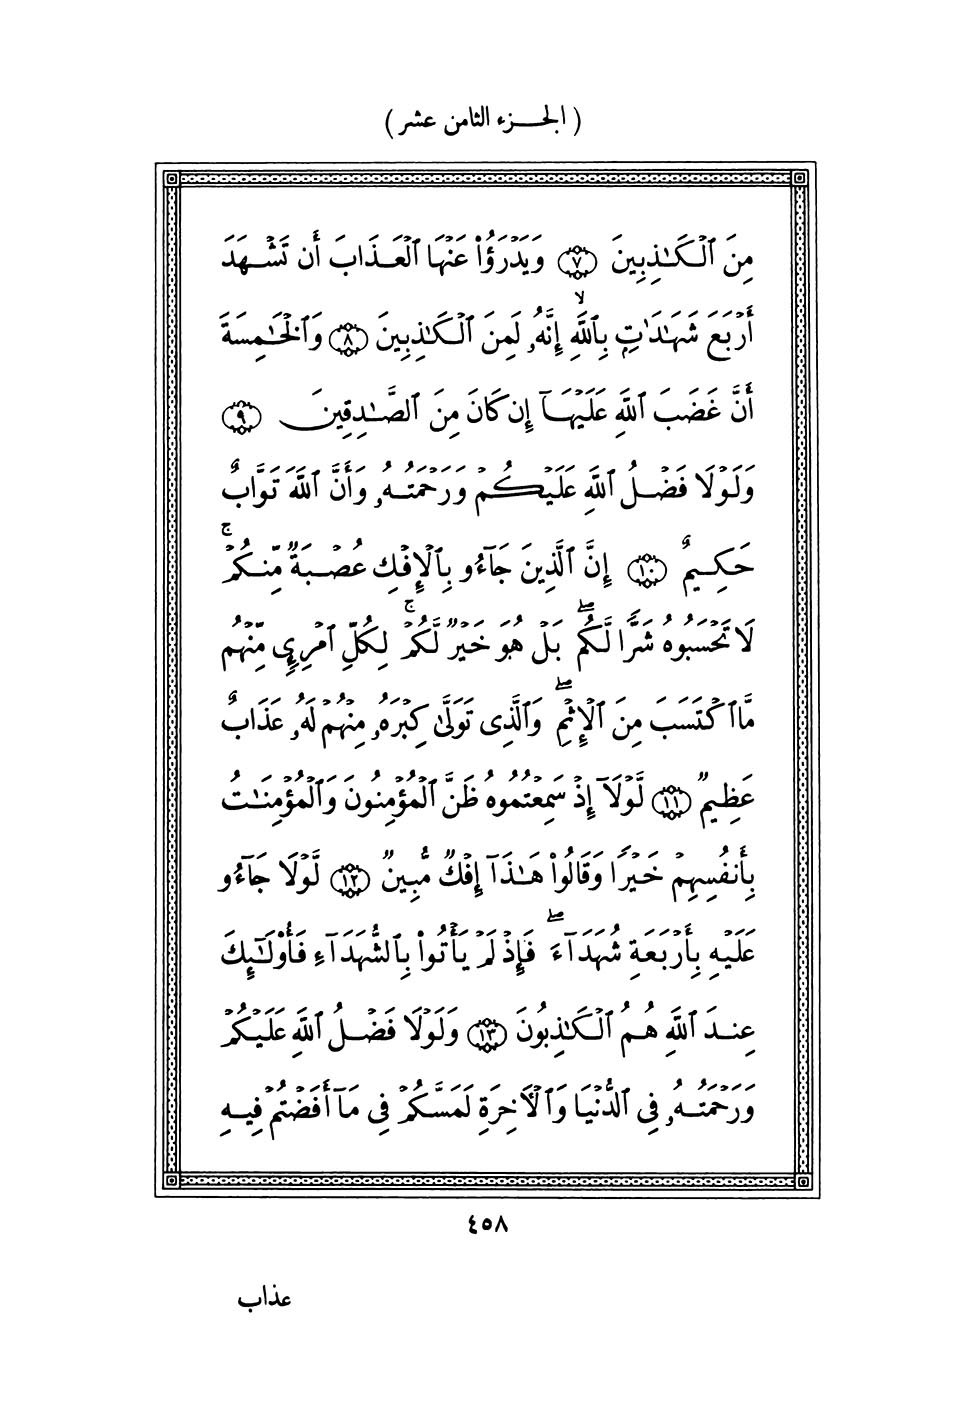 ( الجزء الثامن عشر )
مِنَ ٱلْكَـٰذِبِينَ ۝٧ وَيَدْرَؤُا۟ عَنْهَا ٱلْعَذَابَ أَن تَشْهَدَ
أَرْبَعَ شَهَـٰدَٰتٍۭ بِٱللَّهِ ۙ إِنَّهُۥ لَمِنَ ٱلْكَـٰذِبِينَ ۝٨ وَٱلْخَـٰمِسَةَ
أَنَّ غَضَبَ ٱللَّهِ عَلَيْهَآ إِن كَانَ مِنَ ٱلصَّـٰدِقِينَ ۝٩
وَلَوْلَا فَضْلُ ٱللَّهِ عَلَيْكُمْ وَرَحْمَتُهُۥ وَأَنَّ ٱللَّهَ تَوَّابٌ
حَكِيمٌ ۝١٠ إِنَّ ٱلَّذِينَ جَآءُو بِٱلْإِفْكِ عُصْبَةٌ مِّنكُمْ ۚ
لَا تَحْسَبُوهُ شَرًّا لَّكُم ۖ بَلْ هُوَ خَيْرٌ لَّكُمْ ۚ لِكُلِّ ٱمْرِئٍ مِّنْهُم
مَّا ٱكْتَسَبَ مِنَ ٱلْإِثْمِ ۖ وَٱلَّذِى تَوَلَّىٰ كِبْرَهُۥ مِنْهُمْ لَهُۥ عَذَابٌ
عَظِيمٌ ۝١١ لَّوْلَآ إِذْ سَمِعْتُمُوهُ ظَنَّ ٱلْمُؤْمِنُونَ وَٱلْمُؤْمِنَـٰتُ
بِأَنفُسِهِمْ خَيْرًا وَقَالُوا۟ هَـٰذَآ إِفْكٌ مُّبِينٌ ۝١٢ لَّوْلَا جَآءُو
عَلَيْهِ بِأَرْبَعَةِ شُهَدَآءَ ۖ فَإِذْ لَمْ يَأْتُوا۟ بِٱلشُّهَدَآءِ فَأُو۟لَـٰٓئِكَ
عِندَ ٱللَّهِ هُمُ ٱلْكَـٰذِبُونَ ۝١٣ وَلَوْلَا فَضْلُ ٱللَّهِ عَلَيْكُمْ
وَرَحْمَتُهُۥ فِى ٱلدُّنْيَا وَٱلْـَٔاخِرَةِ لَمَسَّكُمْ فِى مَآ أَفَضْتُمْ فِيهِ
٤٥٨
عذاب